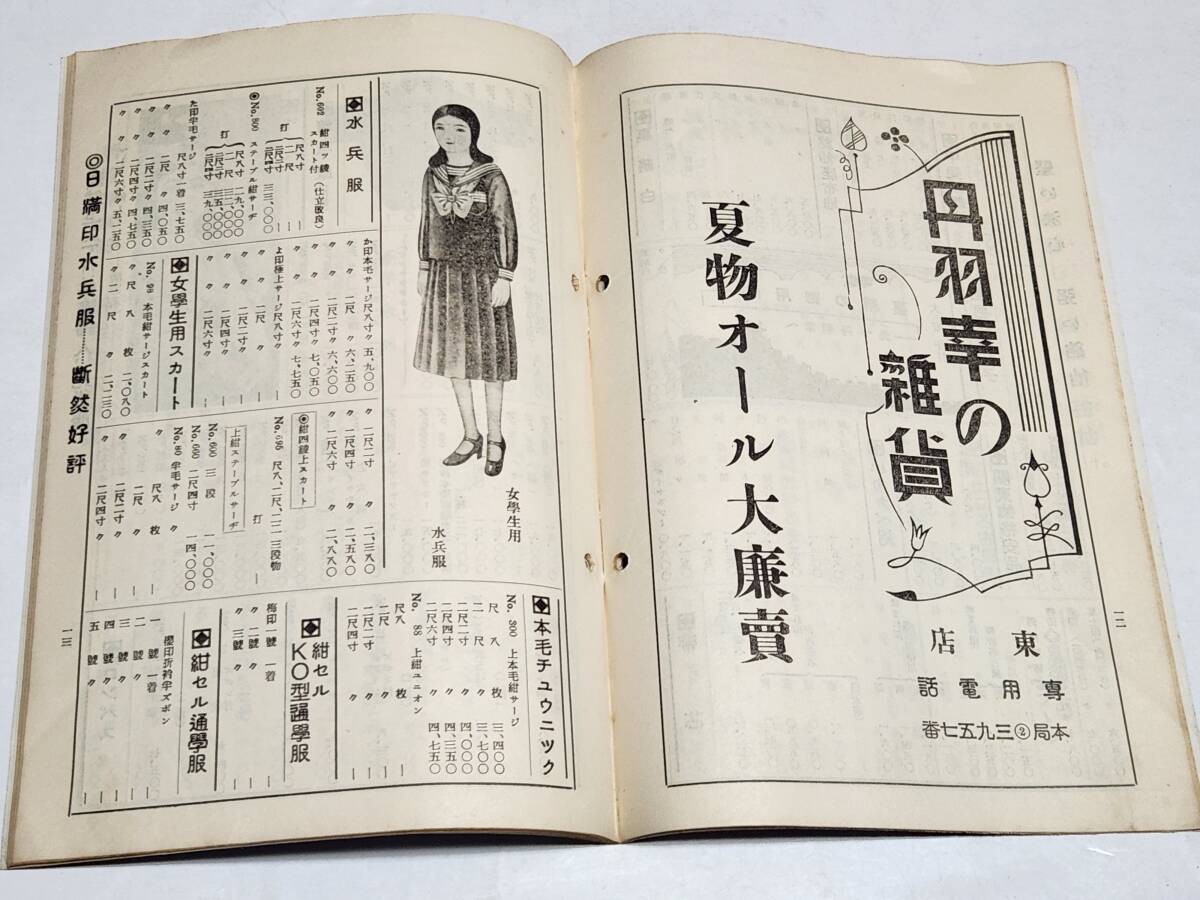 丹羽幸の
雜貨
夏物オール大廉賣
東店
專用電話
本局②三九五七番
一二
水兵服
No. 602 紺四ッ綾スカート付(仕立改良)
尺八寸 ―
二尺 ―
二尺二寸 三三、〇〇〇
打
◉No. 800 ステープル紺サーヂ
尺八寸 二九、〇〇〇
二尺 三二、〇〇〇
打
た印半毛サージ
尺八寸一着 三、七五〇
〃 二尺 〃 四、〇五〇
〃 二尺二寸〃 四、三五〇
〃 二尺四寸〃 四、七五〇
〃 二尺六寸〃 五、一五〇
か印本毛サージ尺八寸〃 五、九〇〇
〃 二尺 〃 六、二五〇
〃 二尺二寸〃 六、六〇〇
〃 二尺四寸〃 七、〇五〇
〃 二尺六寸〃 七、七五〇
よ印極上サージ尺八寸〃 ―
〃 二尺 〃 ―
〃 二尺二寸〃 ―
〃 二尺四寸〃 ―
〃 二尺六寸〃 ―
女學生用スカート
No. 98 本毛紺サージスカート
〃 尺八 枚 二、〇八〇
〃 二尺 〃 二、二三〇
〃 二尺二寸 〃 二、三八〇
〃 二尺四寸 〃 二、五八〇
〃 二尺六寸 〃 二、八八〇
◉紺四綾上スカート
No. 696 尺八、二尺、二二 三段物
打 ―
上紺ステープルサーヂ
No. 600 三段 一一、〇〇〇
No. 660 二尺四寸 一四、〇〇〇
No. 80 半毛サージ 〃 ―
〃 尺八 枚 ―
〃 二尺 〃 ―
〃 二尺二寸 〃 ―
〃 二尺四寸 〃 ―
女學生用
水兵服
本毛チュウニック
No. 300 上本毛紺サージ
尺八 枚 三、四〇〇
二尺 〃 三、七〇〇
二尺二寸 〃 四、〇〇〇
二尺四寸 〃 四、三五〇
二尺六寸 〃 四、七五〇
No. 88 上紺ユニオン
尺八 枚 ―
二尺 〃 ―
二尺二寸 〃 ―
二尺四寸 〃 ―
紺セル
KO型通學服
梅印一號 一着 ―
〃 二號 〃 ―
〃 三號 〃 ―
紺セル通學服
櫻印折衿半ズボン
一號 一着 ―
二號 〃 ―
三號 〃 ―
四號 〃 ―
五號 〃 ―
◎日滿印水兵服……斷然好評
一三